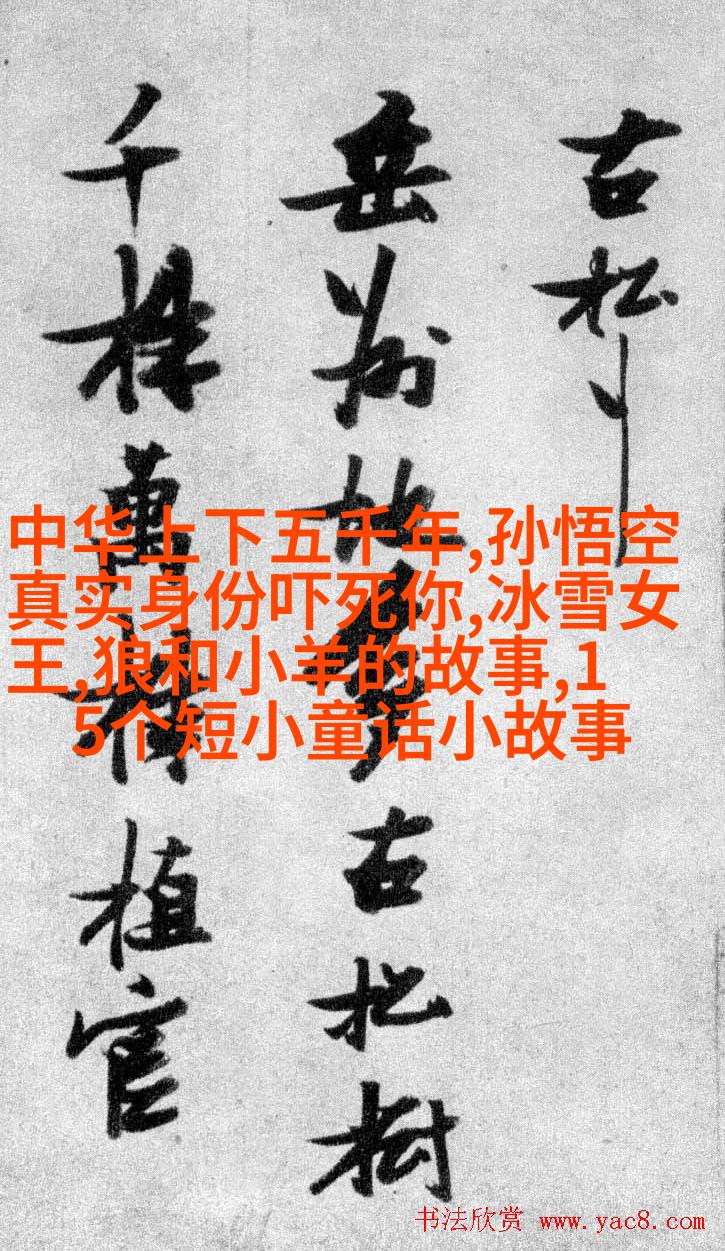 古松
岳州地多古松樹
千株萬株植官
中华上下五千年,孙悟空
真实身份吓死你,冰雪女
王,狼和小羊的故事,1
5个短小童话小故事
书法欣赏 www.yac8.com